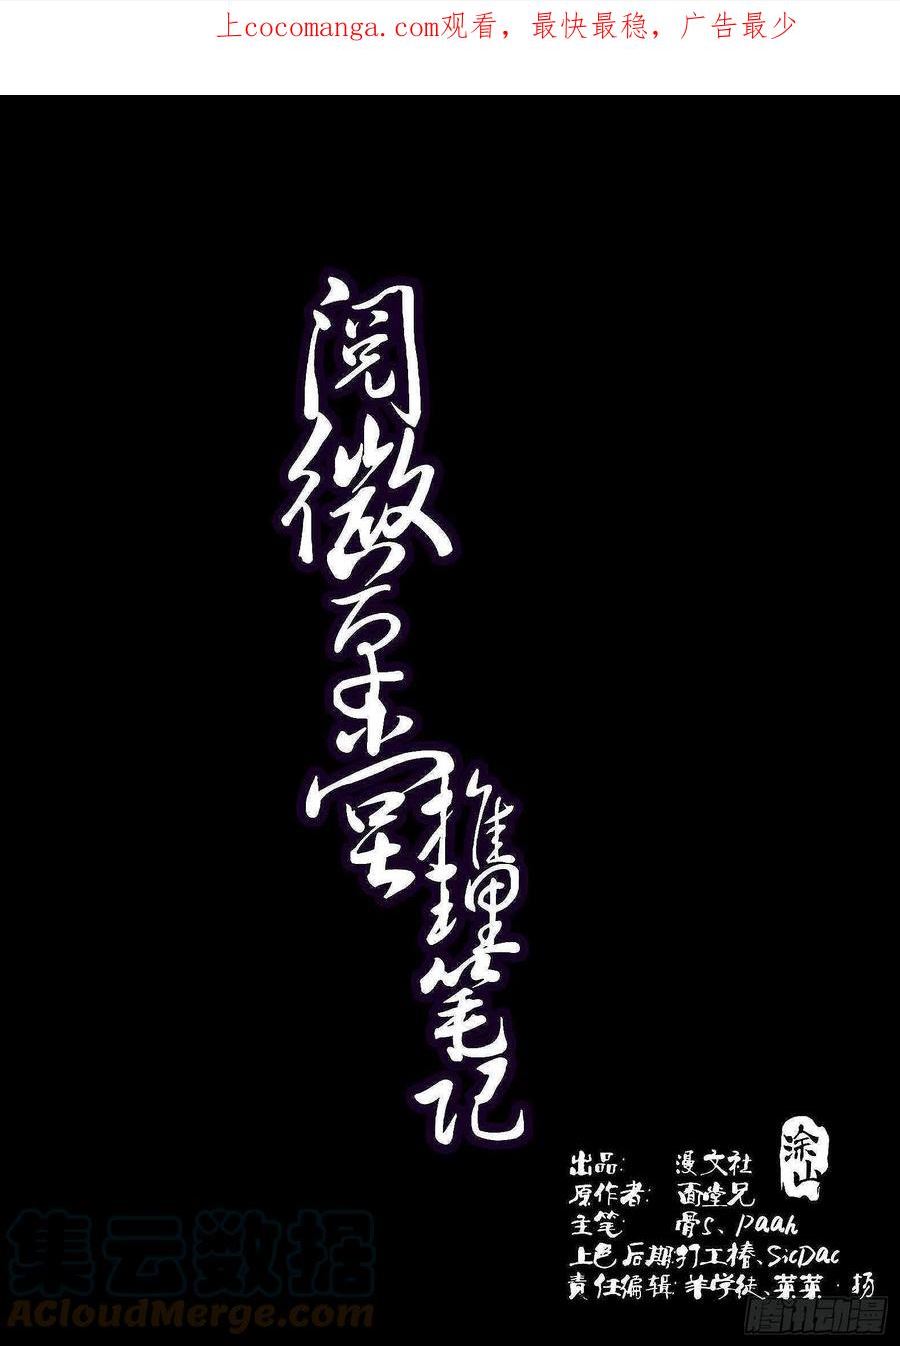 上cocomanga.com观看，最快最稳，广告最少
阅微草堂
推理
笔记
涂山
出品: 漫文社
原作者: 面堂兄
主笔: 骨S、paah
上色后期:打工椿、SicDac
責任编辑:羊学徒、菜菜·扬
集云数据
ACloudMerge.com
腾讯动漫